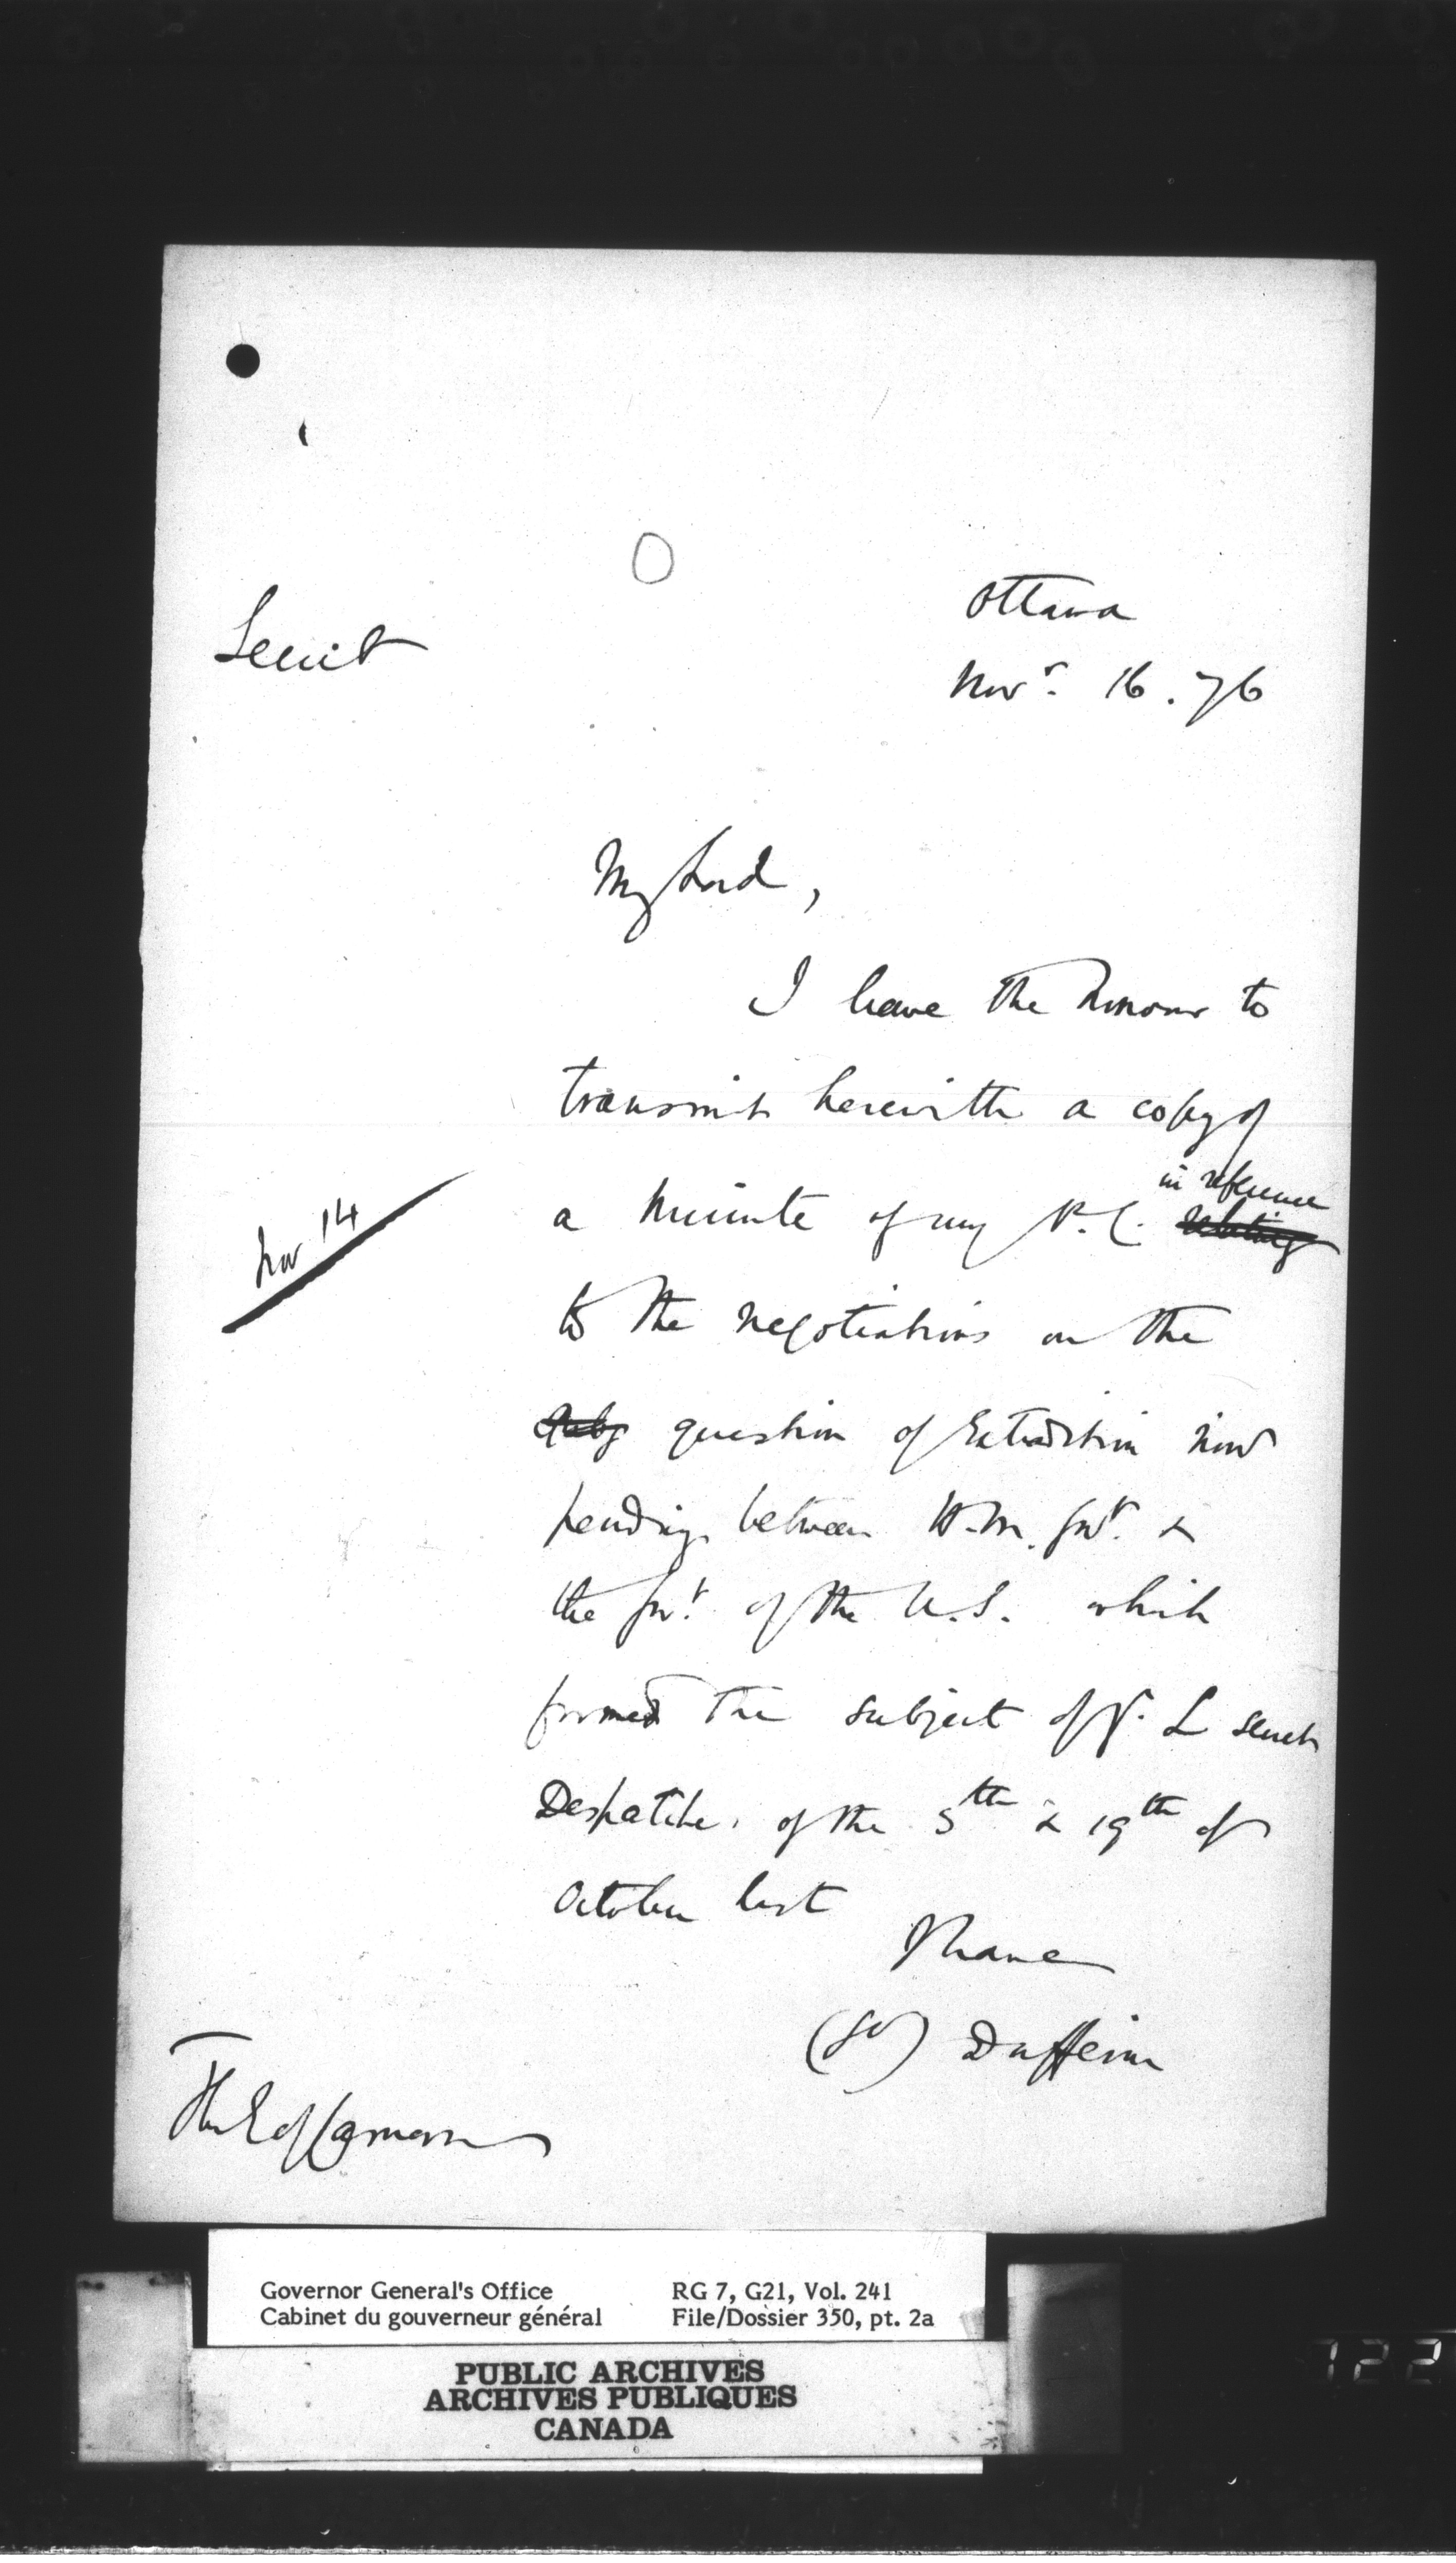 Secret
Ottawa
Novr. 16. 76
My Lord,
I have the honour to
transmit herewith a copy of
Nov 14
a Minute of my P.C. in reference
relating
to the negotiations on the
question of Extradition now
pending between H.M. Govt. &
the Govt. of the U.S. which
formed the subject of Yr. L secret
Despatches of the 5th & 19th of
October last
I have
(Sd) Dufferin
The E of Carnarvon
Governor General's Office RG 7, G21, Vol. 241
Cabinet du gouverneur général File/Dossier 350, pt. 2a
PUBLIC ARCHIVES
ARCHIVES PUBLIQUES
CANADA
722